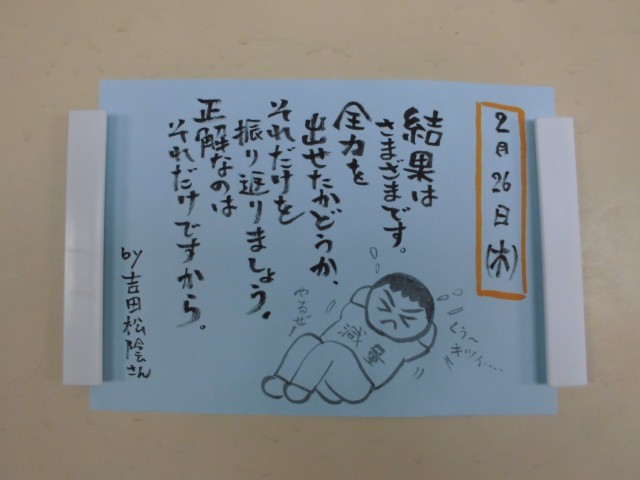 2月26日(木)
結果は
さまざまです。
全力を
出せたかどうか、
それだけを
振り返りましょう。
正解なのは
それだけですから。
by吉田松陰さん
やるぜ!
減量
くぅ〜
キツイ....